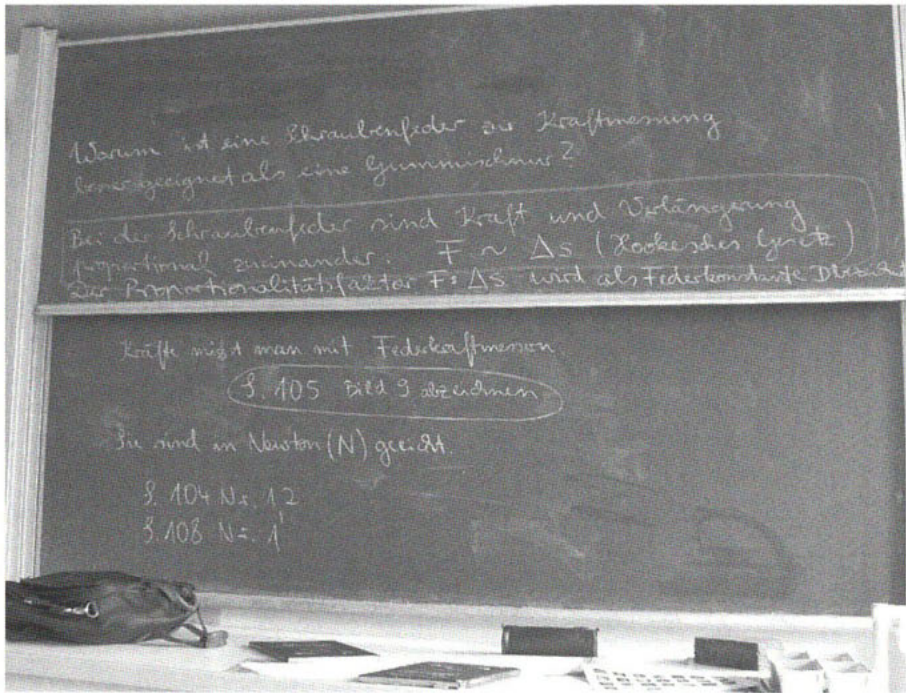 Warum ist eine Schraubenfeder zur Kraftmessung
besser geeignet als eine Gummischnur?
Bei der Schraubenfeder sind Kraft und Verlängerung
proportional zueinander. F ~ Δs (Hookesches Gesetz)
Der Proportionalitätsfaktor F:Δs wird als Federkonstante D
Kräfte mißt man mit Federkraftmessern
S. 105 Bild 3 abzeichnen
Sie sind in Newton (N) geeicht.
S. 104 Nr. 1,2
S. 108 Nr. 1